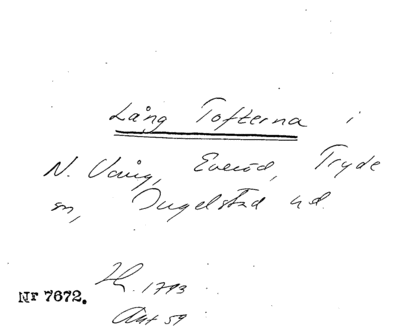 Lång Tofterna i
N. Vång, Everöd, Tryde
sn, Ingelstad hd.
H. 1793
Nr 7672.
Akt 59